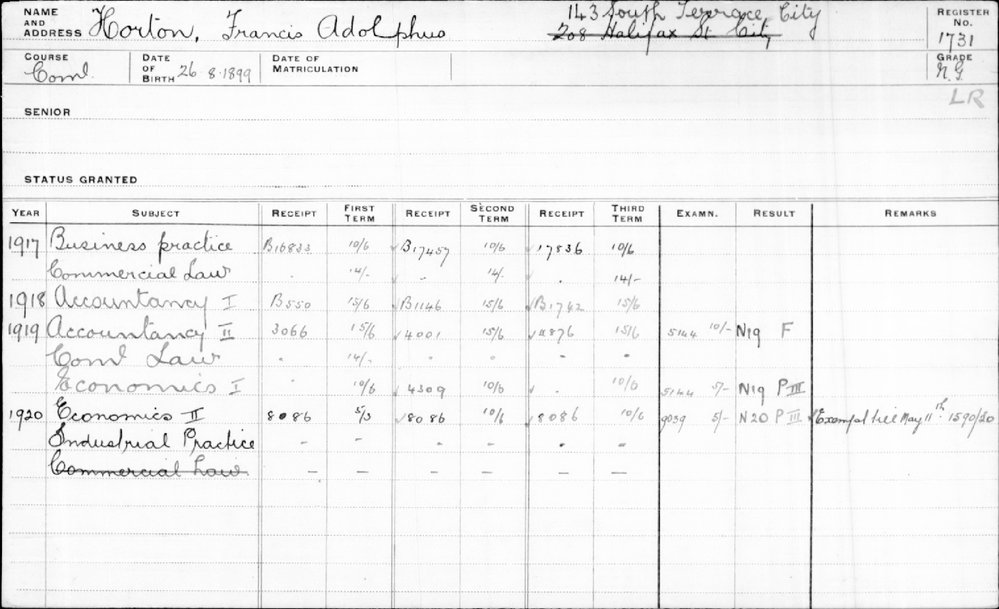 NAME AND ADDRESS Horton, Francis Adolphus 143 South Terrace City REGISTER No.
208 Halifax St City 1731
COURSE Coml. DATE OF BIRTH 26.8.1899 DATE OF MATRICULATION GRADE N.G.
LR
SENIOR
STATUS GRANTED
YEAR SUBJECT RECEIPT FIRST TERM RECEIPT SECOND TERM RECEIPT THIRD TERM EXAMN. RESULT REMARKS
1917 Business practice B16833 10/6 B17457 10/6 17836 10/6
Commercial Law . 14/- . 14/- . 14/-
1918 Accountancy I B550 15/6 B1146 15/6 B1742 15/6
1919 Accountancy II 3066 15/6 4001 15/6 4876 15/6 5144 10/- N19 F
Coml Law " 14/- " " " "
Economics I " 10/6 4309 10/6 . 10/6 5144 5/- N19 P III
1920 Economics II 8086 5/3 8086 10/6 8086 10/6 9039 5/- N20 P III Exempt till May 11th. 1590/20
Industrial Practice - - - - - -
Commercial Law - - - - - -